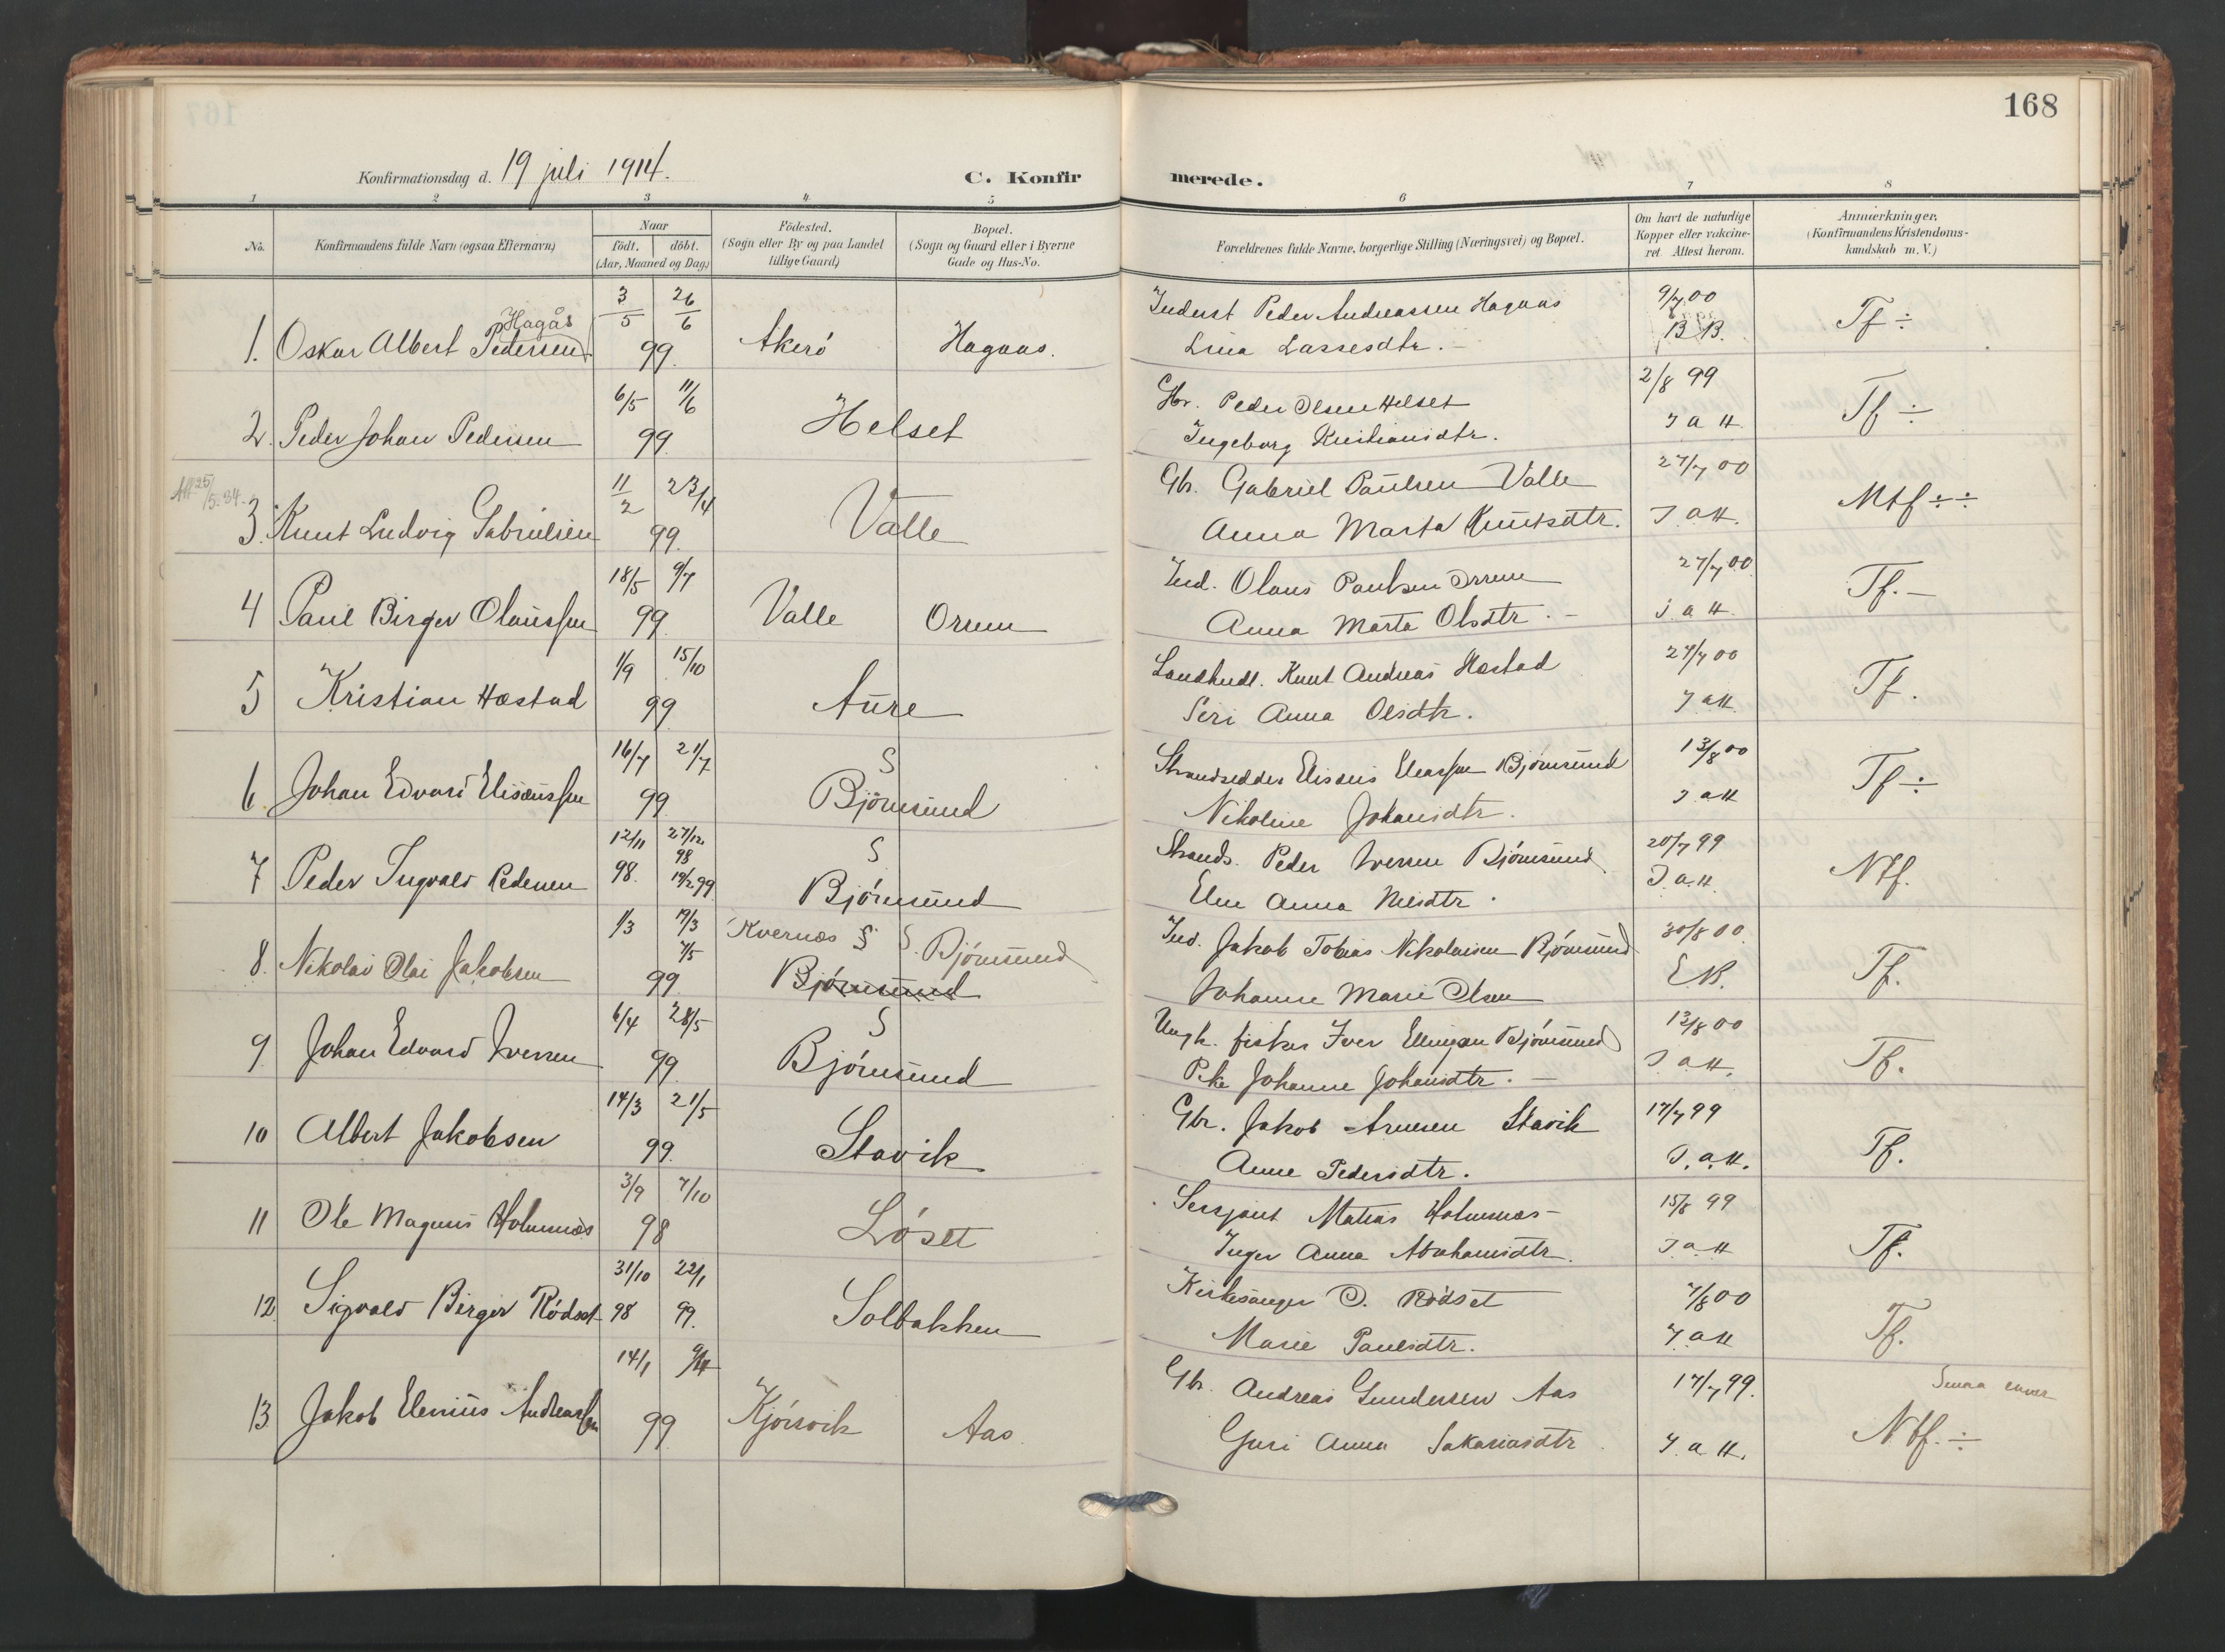 168
Konfirmationsdag d. 19 juli 1914.
C. Konfirmerede.
1 2 3 4 5 6 7 8
No.
Konfirmandens fulde Navn (ogsaa Efternavn)
Naar
födt. döbt.
(Aar, Maaned og Dag)
Födested.
(Sogn eller By og paa Landet
tillige Gaard)
Bopæl.
(Sogn og Gaard eller i Byerne
Gade og Hus-No.
Forældrenes fulde Navne, borgerlige Stilling (Næringsvei) og Bopæl.
Om havt de naturlige
Kopper eller vakcine-
ret. Attest herom.
Anmærkninger.
(Konfirmandens Kristendoms-
kundskab m. V.)
Hagås
1. Oskar Albert Pedersen 3/5 26/6 99. Akerö Hagaas.
Inderst Peder Andreassen Hagaas 9/7 00
Lina Lassesdtr. B B. Tf ÷
2. Peder Johan Pedersen 6/5 11/6 99. Helset
Gbr. Peder Olsen Helset 2/8 99
Ingeborg Kristiansdtr. J a H. Tf ÷
Att 25/5.34.
3. Knut Ludvig Gabrielsen 11/2 23/4 99. Valle
Gbr. Gabriel Paulsen Valle 27/7 00
Anna Marta Knutsdtr. J. a H. Mtf ÷ ÷
4 Paul Birger Olaussen 18/5 9/7 99. Valle Orrem
Ind. Olaus Paulsen Orrem 27/7 00.
Anna Marta Olsdtr. - J. a H. Tf. -
5 Kristian Hostad 1/9 15/10 99 Aure
Landhndl. Knut Andreas Hostad 27/7 00
Seri Anna Olsdtr. J a H. Tf.
6. Johan Edvard Elisæussen 16/7 21/7 99. S Björnsund
Strandsidder Elisæus Eliassen Björnsund 13/8 00
Nikoline Johansdtr. J. a H Tf ÷
7 Peder Ingvald Pedersen 12/11 98. 27/12 98 19/2 99 S Björnsund
Strands. Peder Iversen Björnsund 20/7 99
Elen Anna Nilsdtr. J. a. H. Ntf.
8. Nikolai Olai Jakobsen 1/3 19/3 7/5 99. Kvernæs S S. Björnsund
Björnsund
Ind. Jakob Tobias Nikolaisen Björnsund 30/8 00.
Johanne Marie Olsen E B. Tf.
9. Johan Edvard Iversen 6/4 28/5 99. S Björnsund
Ungk. fisker Iver Ellingsen Björnsund 13/8 00
Pike Johanne Johansdtr. - J a H. Tf.
10 Albert Jakobsen 14/3 21/5 99. Stavik
Gbr. Jakob Arnesen Stavik 17/7 99
Anne Pedersdtr. J. a. H. Tf.
11 Ole Magnus Holmnæs 3/9 7/10 98 Löset
Sersjant Matias Holmnæs 15/8 99
Inger Anna Abrahamsdtr. J a H Tf.
12. Sigvald Birger Rödset 31/10 98 22/1 99. Solbakken
Kirkesanger O. Rödset 7/8 00
Marie Paulsdtr. J. a H Tf.
13. Jakob Elenius Andreassen 14/1 9/4 99. Kjörsvik Aas.
Gbr. Andreas Gundersen Aas 17/7 99.
Guri Anna Sakariasdtr. J. a. H. Ntf. ÷